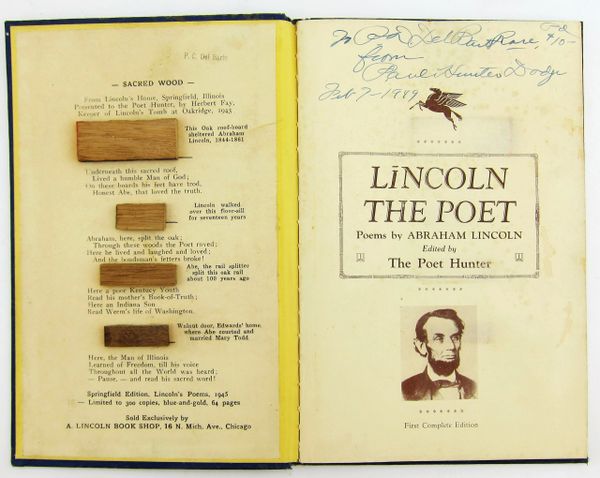 P. C. Del Barto
— SACRED WOOD —
From Lincoln's Home, Springfield, Illinois
Presented to the Poet Hunter, by Herbert Fay,
Keeper of Lincoln's Tomb at Oakridge, 1943
This Oak roof-board
sheltered Abraham
Lincoln, 1844-1861
Underneath this sacred roof,
Lived a humble Man of God;
On these boards his feet have trod,
Honest Abe, that loved the truth.
Lincoln walked
over this floor-sill
for seventeen years
Abraham, here, split the oak;
Through these woods the Poet roved;
Here he lived and laughed and loved;
And the bondsman's letters broke!
Abe, the rail splitter
split this oak rail
about 100 years ago
Here a poor Kentucky Youth
Read his mother's Book-of-Truth;
Here an Indiana Son
Read Weem's life of Washington.
Walnut door, Edwards' home,
where Abe courted and
married Mary Todd
Here, the Man of Illinois
Learned of Freedom, till his voice
Throughout all the World was heard;
— Pause, — and read his sacred word!
Springfield Edition, Lincoln's Poems, 1945
— Limited to 300 copies, blue-and-gold, 64 pages
Sold Exclusively by
A. LINCOLN BOOK SHOP, 16 N. Mich. Ave., Chicago
To
from
Paul Hunter Dodge
Feb 7-1949
LīNCOLN
THE POET
Poems by ABRAHAM LINCOLN
Edited by
The Poet Hunter
First Complete Edition